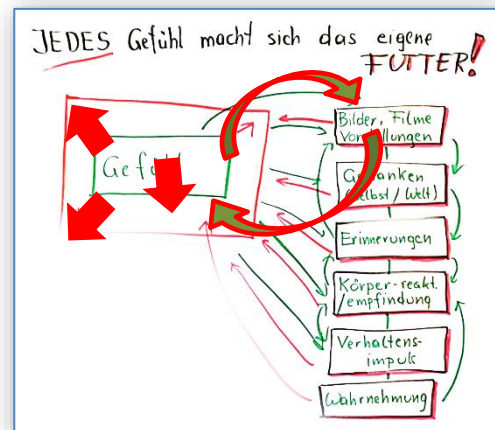 JEDES Gefühl macht sich das eigene
FUTTER!
Gefühl
Bilder, Filme
Vorstellungen
Gedanken
(Selbst / Welt)
Erinnerungen
Körper-reakt.
/empfindung
Verhaltens-
impuls
Wahrnehmung